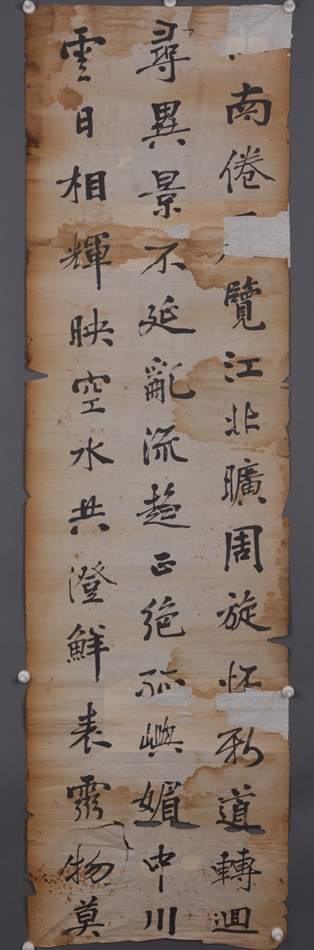 南倦覽江北曠周旋怀新道轉迴
尋異景不延亂流趨正絶孤嶼媚中川
雲日相輝映空水共澄鮮表靈物莫